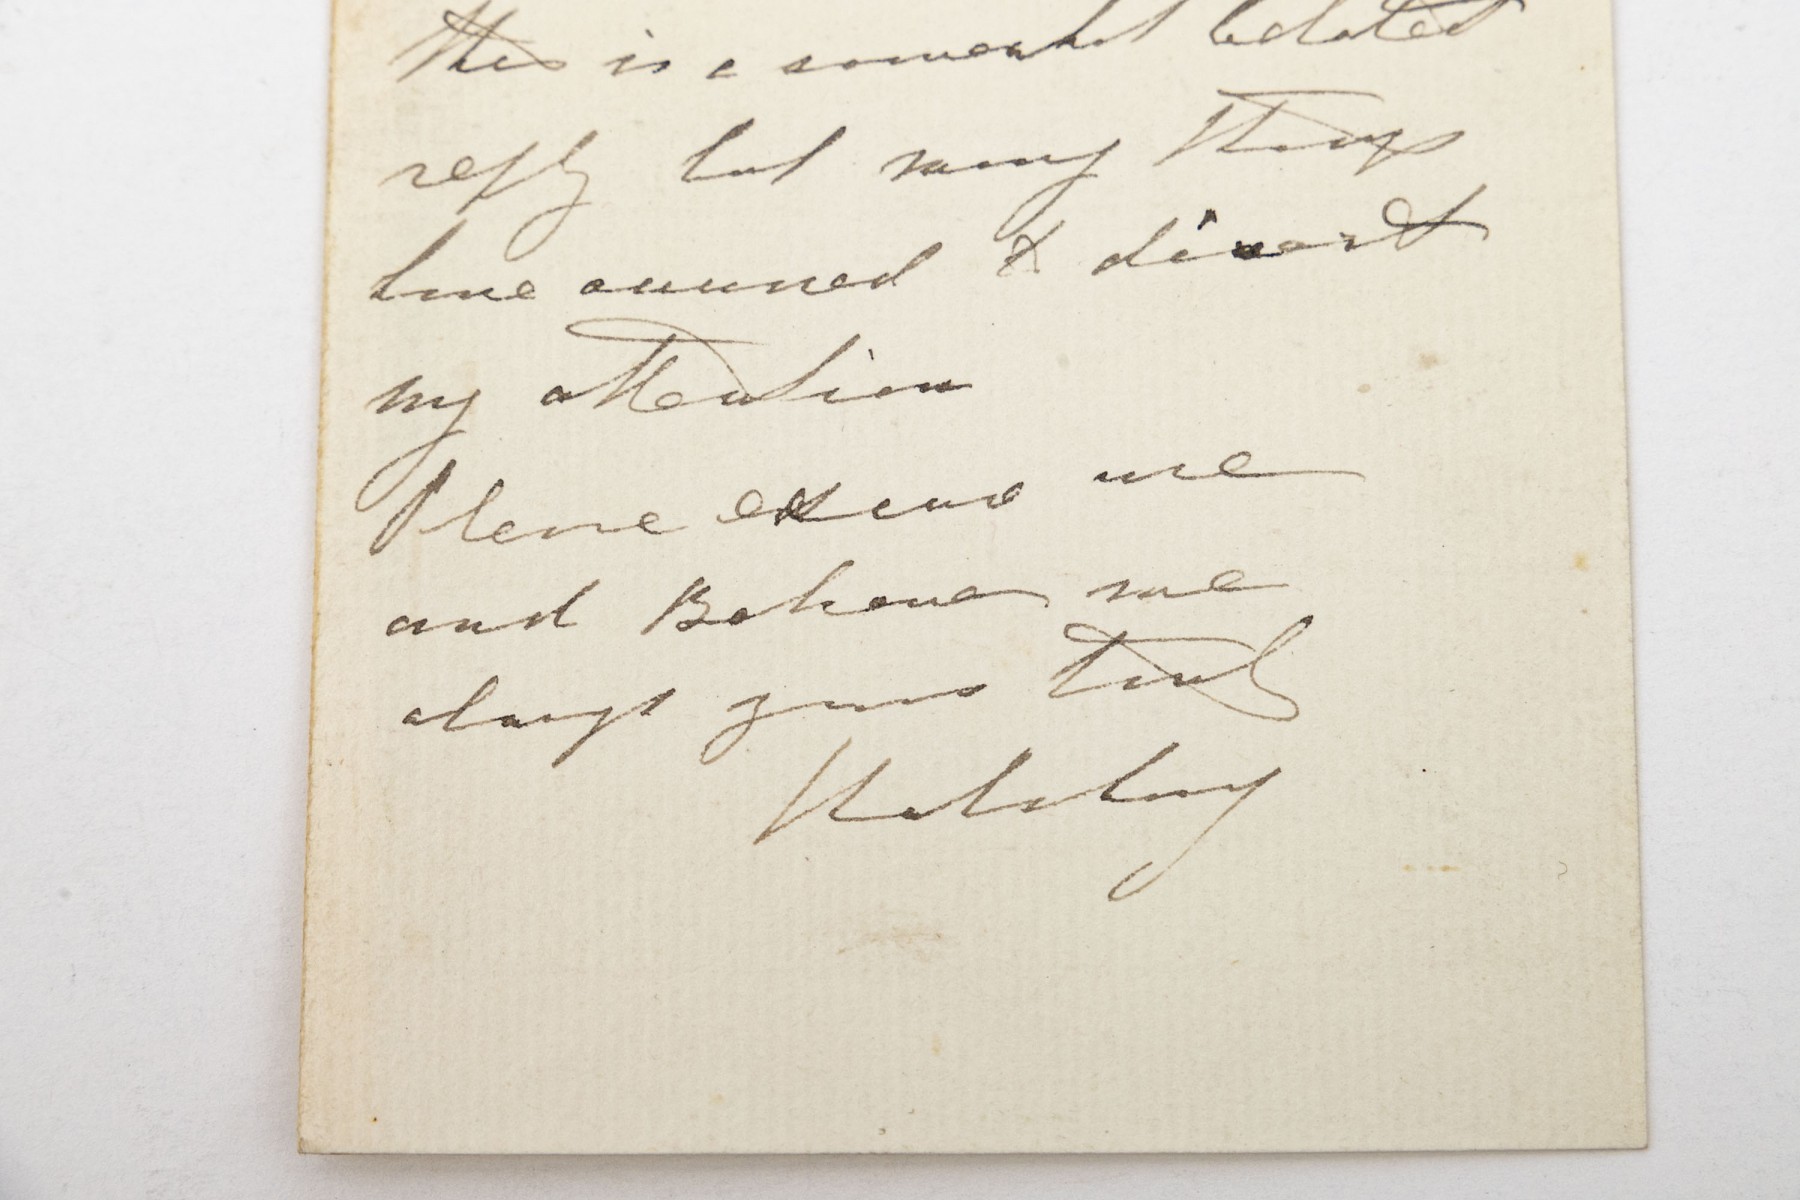 This is a somewhat belated
reply but many things
have occurred to divert
my attention
Please excuse me
and Believe me
always yours truly